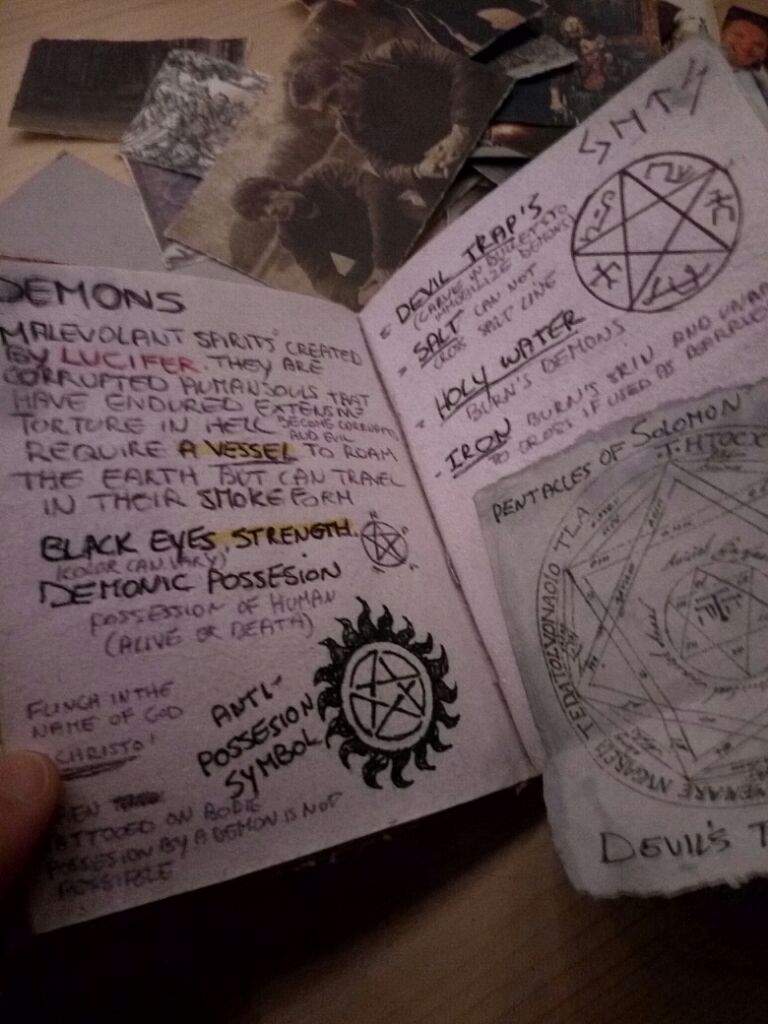 DEMONS
MALEVOLANT SPIRITS CREATED
BY LUCIFER. THEY ARE
CORRUPTED HUMANSOULS THAT
HAVE ENDURED EXTENSIVE
TORTURE IN HELL BECOME CORRUPTED
AND EVIL
REQUIRE A VESSEL TO ROAM
THE EARTH BUT CAN TRAVEL
IN THEIR SMOKEFORM
BLACK EYES, STRENGTH.
(KOLOR CAN VARY)
DEMONIC POSSESION
POSSESSION OF HUMAN
(ALIVE OR DEATH)
FLINCH IN THE
NAME OF GOD
'CHRISTO'
ANTI-
POSSESION
SYMBOL
TATTOOED ON BODIE
POSSESION BY A DEMON IS NOT
POSSIBLE
- DEVIL TRAP'S
(CARVE IN BULLETS TO
IMMOBILIZE DEMONS)
- SALT CAN NOT
CROSS SALT LINE
- HOLY WATER
BURN'S DEMONS
- IRON BURN'S SKIN AND
TO CROSS IF USED AS
PENTACLES OF SOLOMON
DEVIL'S T